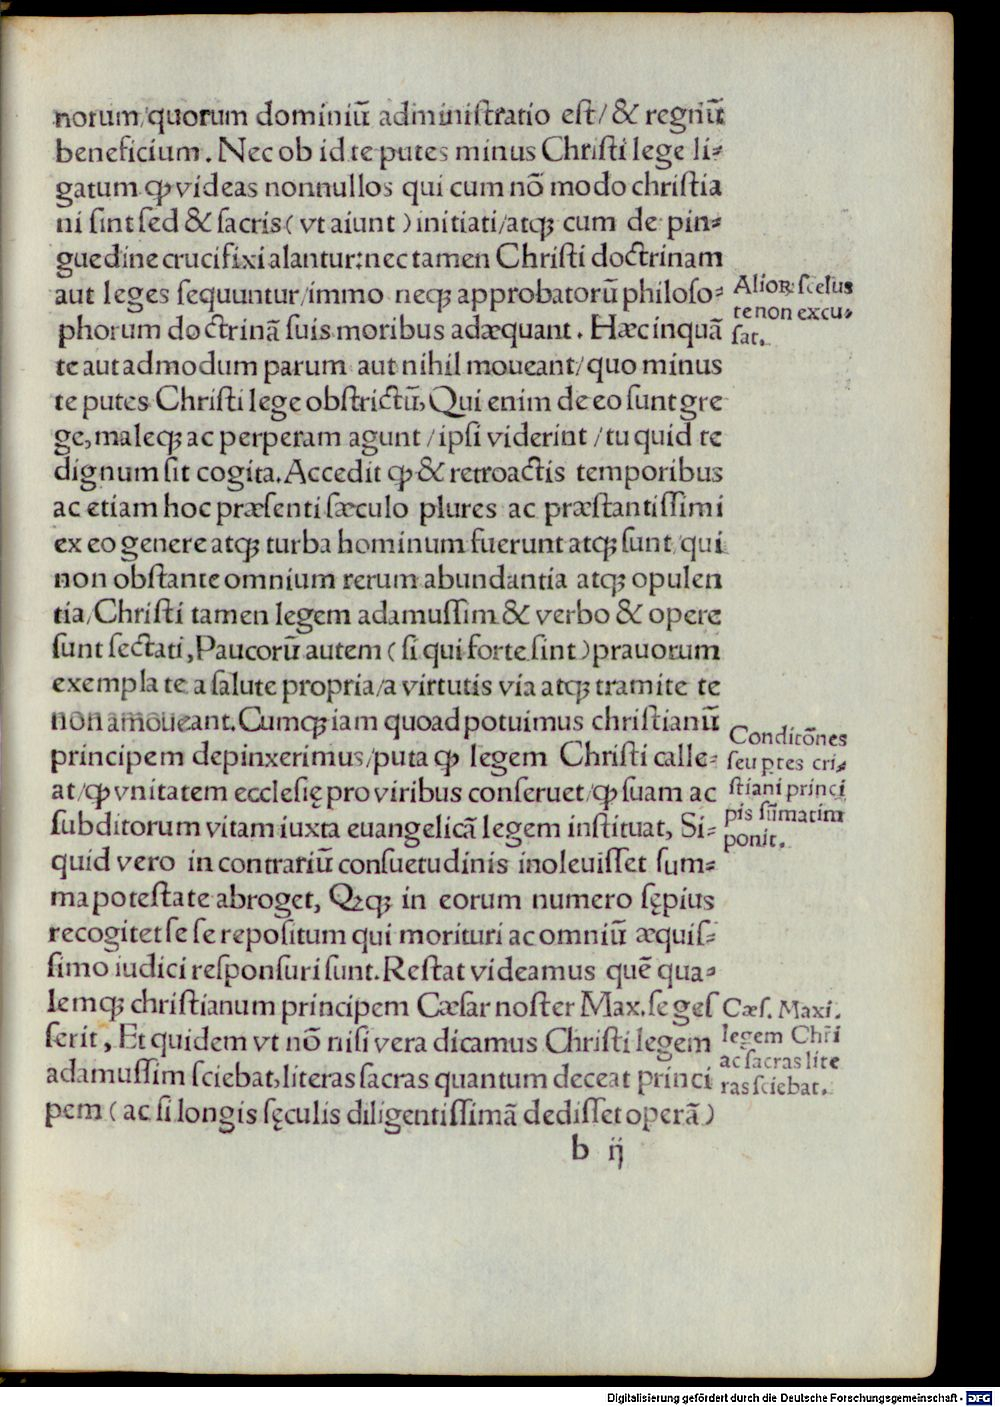 norum/quorum dominiū administratio est/& regnū
beneficium. Nec ob id te putes minus Christi lege li⸗
gatum ꝙ videas nonnullos qui cum nō modo christia
ni sint sed & sacris ( vt aiunt ) initiati/atqꝫ cum de pin⸗
guedine crucifixi alantur: nec tamen Christi doctrinam
aut leges sequuntur/immo neqꝫ approbatorū philoso⸗
phorum doctrinā suis moribus adæquant. Hæc inquā
te aut admodum parum aut nihil moueant/quo minus
te putes Christi lege obstrictū, Qui enim de eo sunt gre
ge, maleqꝫ ac perperam agunt /ipsi viderint /tu quid te
dignum sit cogita. Accedit ꝙ & retroactis temporibus
ac etiam hoc præsenti sæculo plures ac præstantissimi
ex eo genere atqꝫ turba hominum fuerunt atqꝫ sunt, qui
non obstante omnium rerum abundantia atqꝫ opulen
tia/Christi tamen legem adamussim & verbo & opere
sunt sectati, Paucorū autem ( si qui forte sint ) prauorum
exempla te a salute propria/a virtutis via atqꝫ tramite te
non amoueant. Cumqꝫ iam quoad potuimus christianū
principem depinxerimus/puta ꝙ legem Christi calle⸗
at/ꝙ vnitatem ecclesię pro viribus conseruet/ꝙ suam ac
subditorum vitam iuxta euangelicā legem instituat, Si⸗
quid vero in contrariū consuetudinis inoleuisset sum⸗
ma potestate abroget, Qꝫqꝫ in eorum numero sępius
recogitet se se repositum qui morituri ac omniū æquis⸗
simo iudici responsuri sunt. Restat videamus quē qua⸗
lemqꝫ christianum principem Cæsar noster Max. se ges
serit, Et quidem vt nō nisi vera dicamus Christi legem
adamussim sciebat, literas sacras quantum deceat princi
pem ( ac si longis sęculis diligentissimā dedisset operā )
b ij
Alioꝝ scelus
te non excu⸗
sat.
Conditōnes
seu ptes cri⸗
stiani princi
pis sūmatim
ponit.
Cæs. Maxi.
legem Chri
ac sacras lite
ras sciebat.
Digitalisierung gefördert durch die Deutsche Forschungsgemeinschaft - DFG